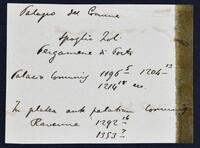 Palazzo del Comune
Spoglio Zol.
Pergamene di Porto
Palazzo Comunis 1196 5 1204 13
1214 18 ec.
In platea ante palatium Comunis
Ravenne 1292 16
1353 7